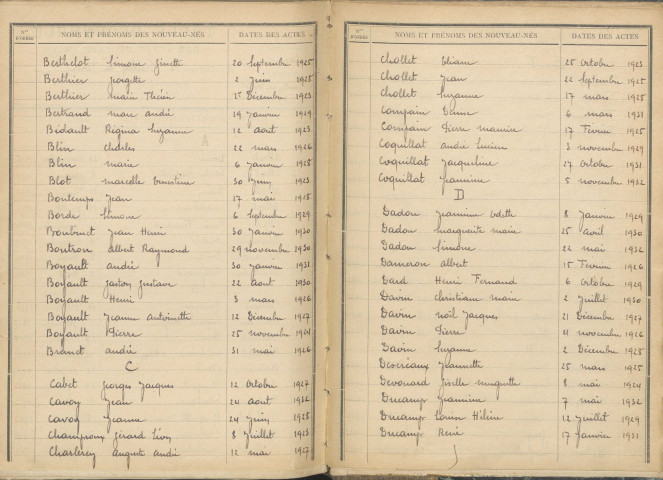 Nos D'ORDRE NOMS ET PRÉNOMS DES NOUVEAU-NÉS DATES DES ACTES
Berthelot Simone Ginette 20 Septembre 1925
Berthier Georgette 2 Juin 1925
Berthier Marie Thérèse 1er Décembre 1923
Bertrand Marc André 29 Janvier 1929
Bédault Régina Suzanne 12 août 1923
Blin Charles 22 mars 1926
Blin Marie 6 Janvier 1928
Blot Marcelle Ernestine 30 Juin 1923
Bontemps Jean 17 mai 1928
Borde Simone 6 Septembre 1929
Boubinet Jean Henri 30 Janvier 1930
Boutron Albert Raymond 29 novembre 1930
Boyault André 30 Janvier 1931
Boyault Gaston Gustave 22 août 1930
Boyault Henri 3 mars 1926
Boyault Jeanne Antoinette 12 Décembre 1927
Boyault Pierre 25 novembre 1924
Brunet André 31 mai 1926
C
Cabet Georges Jacques 12 Octobre 1927
Cavoy Jean 24 août 1932
Cavoy Jeanne 24 Juin 1928
Champroux Gérard Léon 8 Juillet 1923
Charlercy August André 12 mai 1927
Nos D'ORDRE NOMS ET PRÉNOMS DES NOUVEAU-NÉS DATES DES ACTES
Chollet Eliane 25 Octobre 1923
Chollet Jean 22 Septembre 1925
Chollet Suzanne 17 mars 1928
Compain Denise 6 mars 1931
Compain Pierre Maurice 17 Février 1925
Coquillat André Lucien 3 novembre 1929
Coquillat Jacqueline 27 Octobre 1931
Coquillat Jeannine 5 novembre 1932
D
Dadon Jeannine Odette 8 Janvier 1929
Dadon Marguerite Marie 25 avril 1930
Dadon Simone 22 mai 1932
Dameron Albert 15 Février 1926
Dard Henri Fernand 6 Octobre 1929
Davin Christiane Marie 2 Juillet 1930
Davin Noël Jacques 21 Décembre 1927
Davin Pierre 21 novembre 1926
Davin Suzanne 2 Décembre 1928
Desvréaux Jeannette 25 mars 1925
Devouard Giselle Muguette 8 mai 1924
Ducamp Jeannine 7 mai 1932
Ducamp Louise Hélène 12 Juillet 1929
Ducamp René 17 Janvier 1931